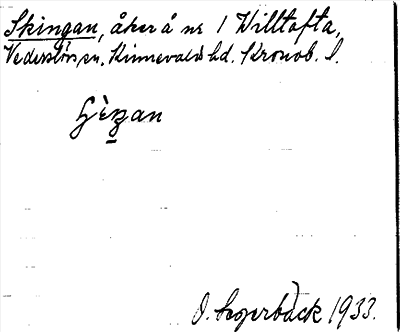 Skingan, åker å nr 1 Willtofta,
Vederslövs sn. Kinnevalds hd. Kronob. l.
O. Segerbäck 1933.